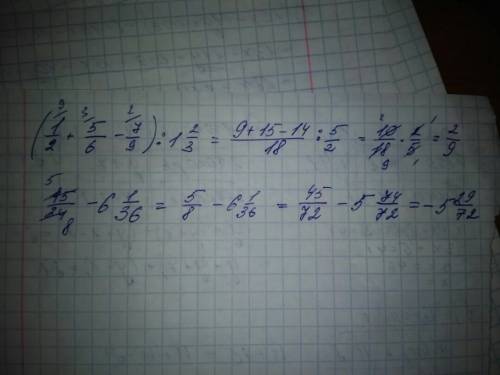 (1/2 + 5/6 - 7/9) : 1 2/3 = (9+15-14)/18 : 5/2 = 10/18 · 2/5 = 2/9
15/24 - 6 1/36 = 5/8 - 6 1/36 = 45/72 - 5 74/72 = -5 29/72